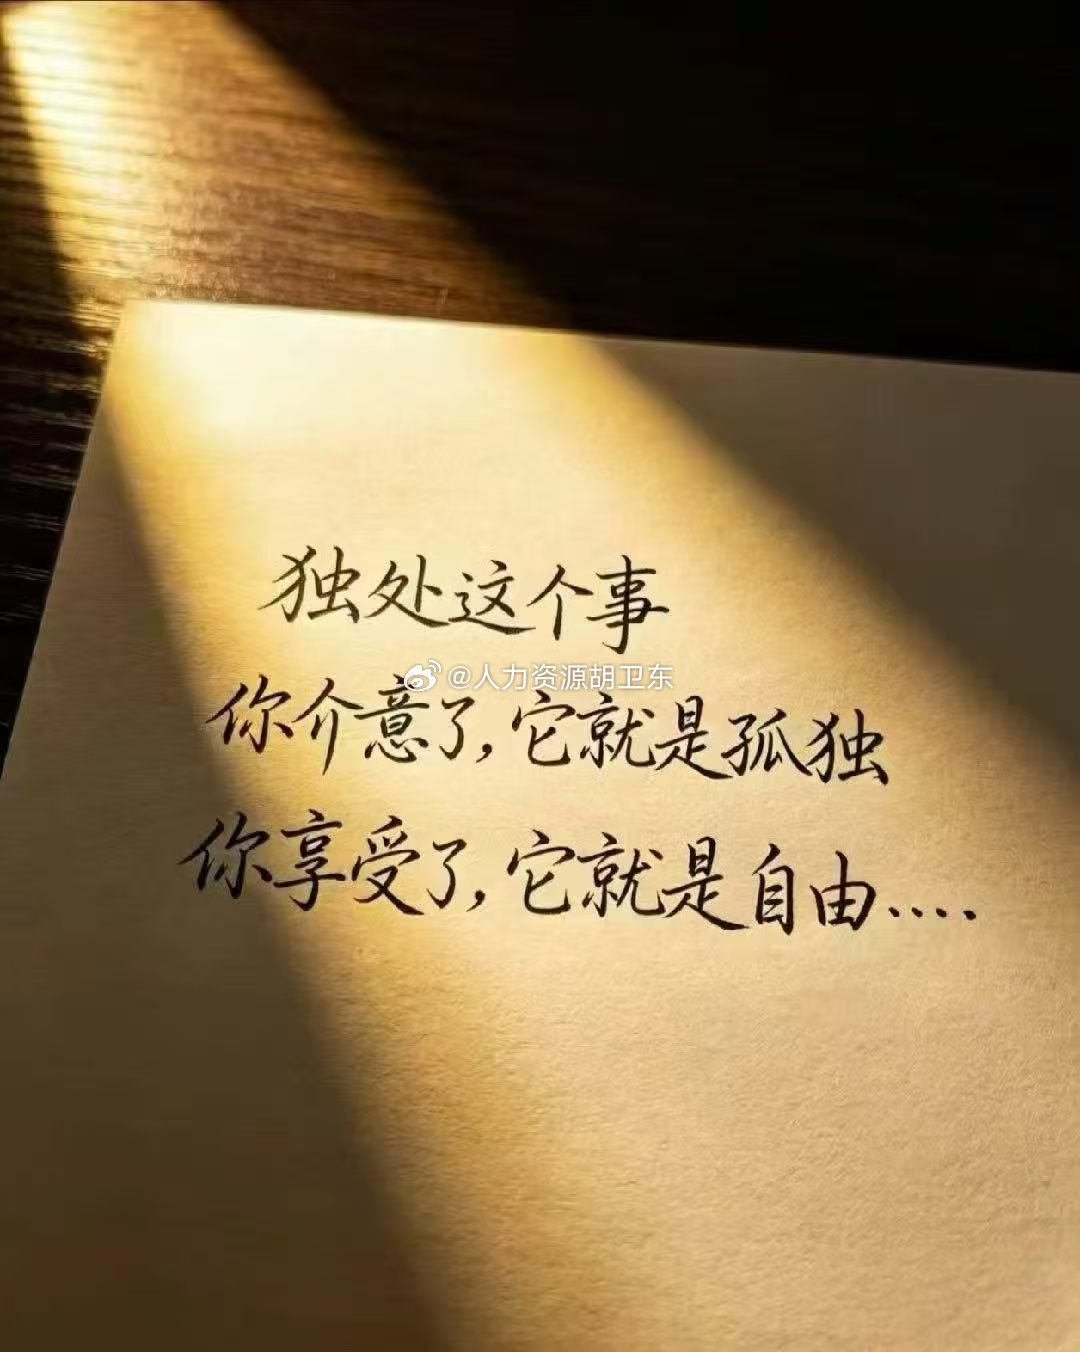 独处这个事
@人力资源胡卫东
你介意了,它就是孤独
你享受了,它就是自由....